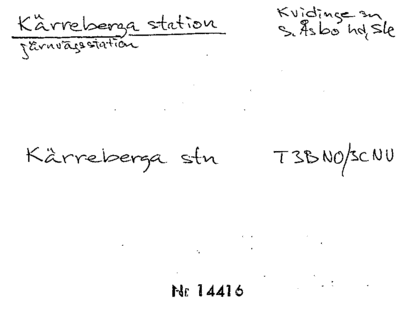 Kärreberga station
Kvidinge sn
S. Åsbo hd, Skе
järnvägsstation
Kärreberga stn
T3BNO/3CNU
Nr 14416